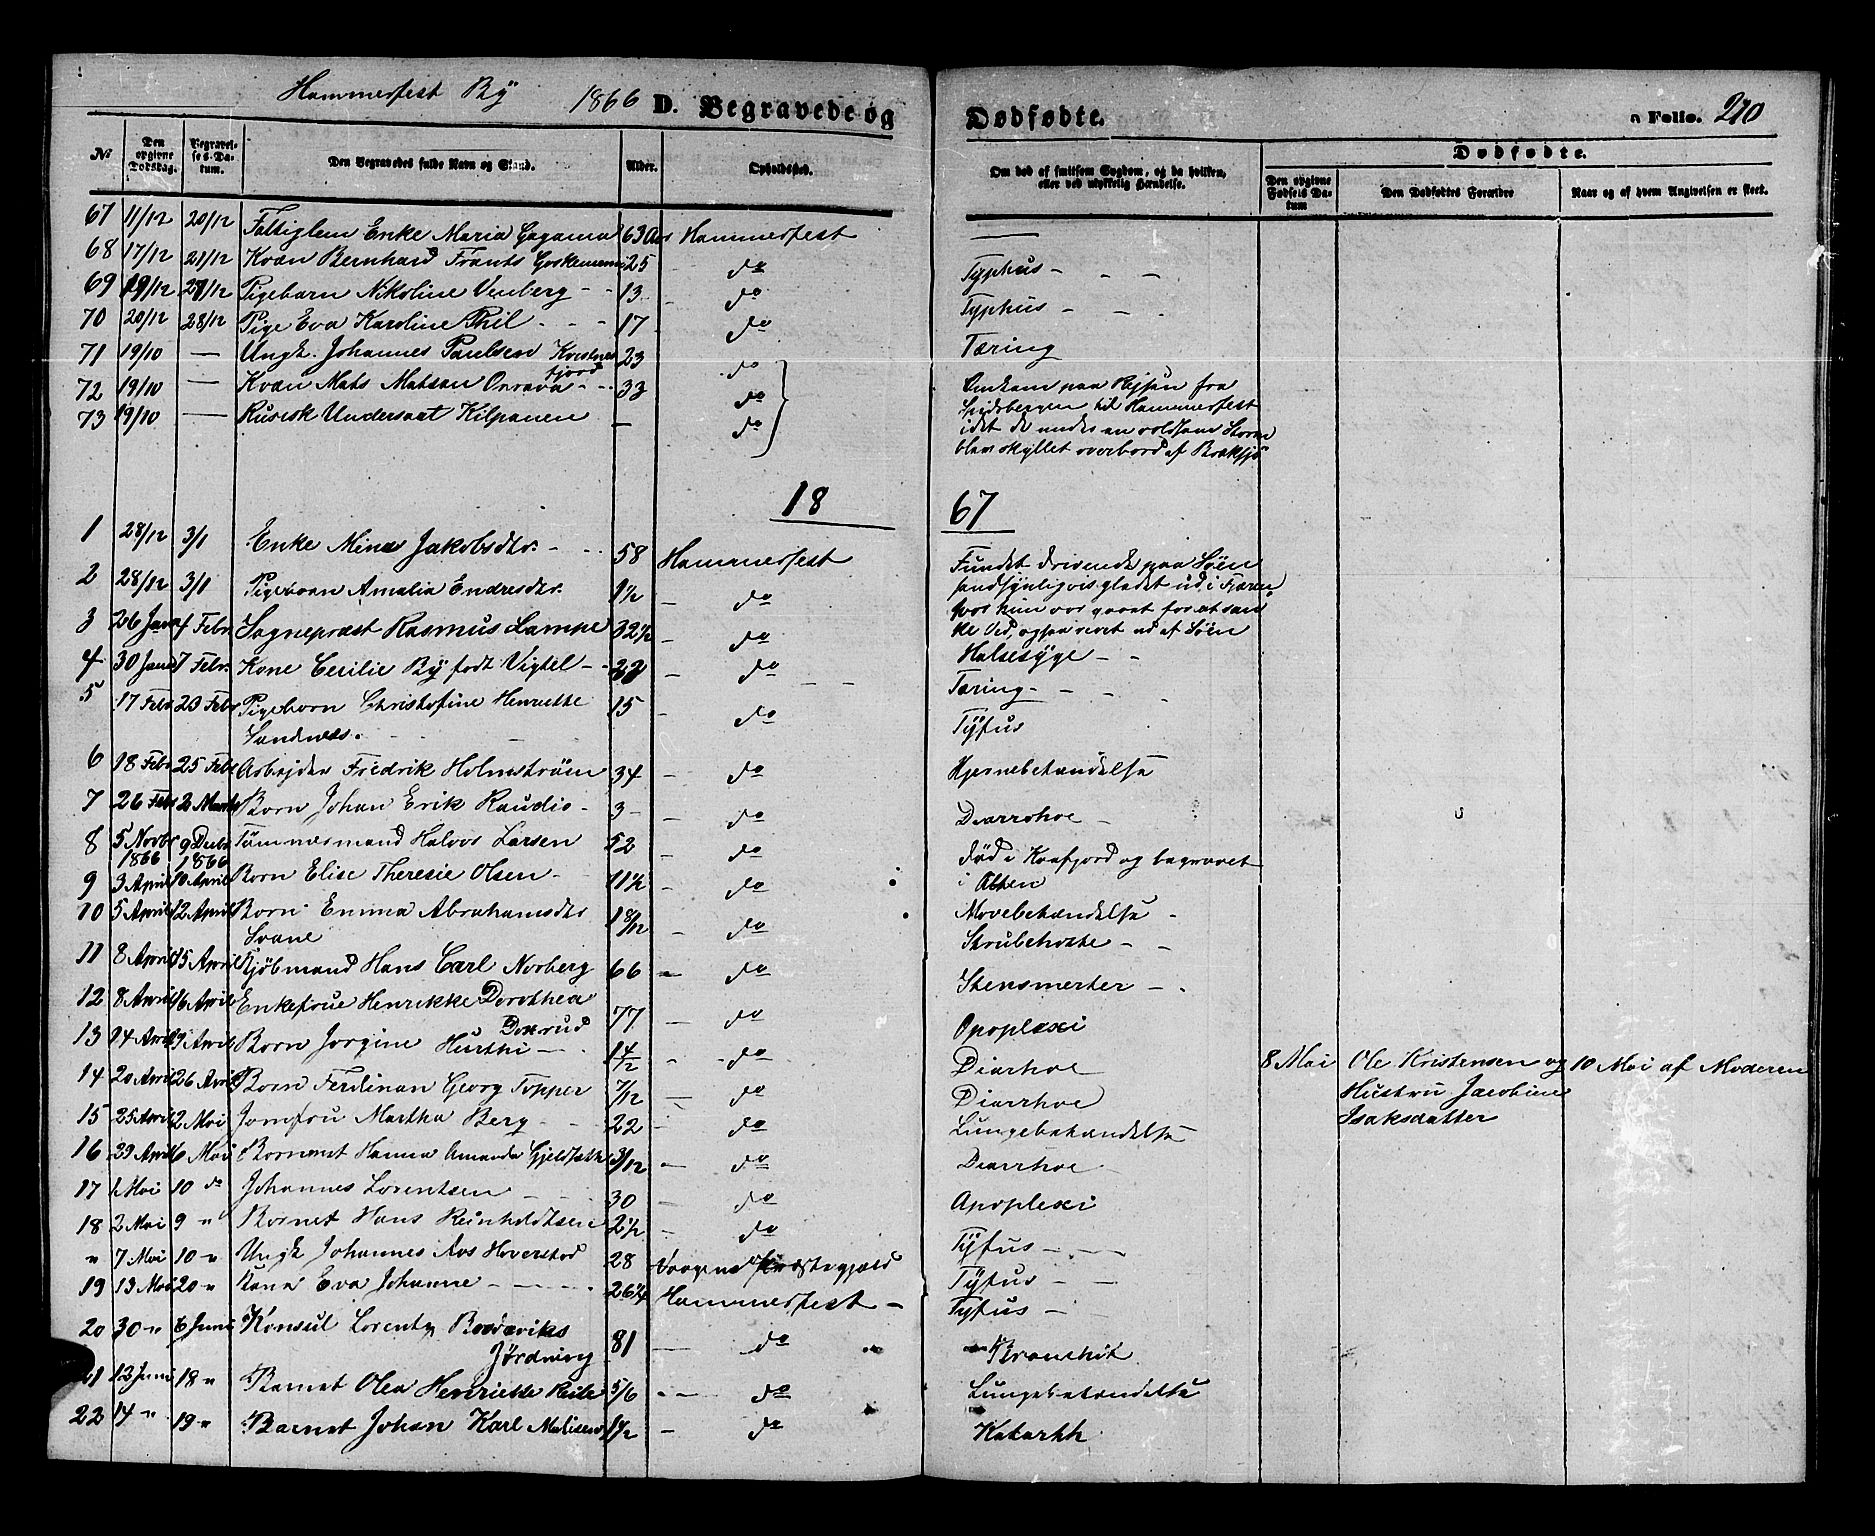 Hammerfest By 1866 D. Begravede og Dødfødte. Folio. 210
No Den opgivne Dødsdag. Begravelses-Datum. Den Begravedes fulde Navn og Stand. Alder. Opholdssted. Om død af smitsom Sygdom, og da hvilken, eller ved ulykkelig Hændelse. Dødfødte. Den opgivne Fødsels-Datum Den Dødfødtes Forældre Naar og af hvem Angivelsen er skeet.
67 11/12 20/12 Fattiglem Enke Maria Gagama 63 Aar Hammerfest —
68 17/12 21/12 Kvæn Bernhard Frants 25 do Typhus
69 19/12 27/12 Pigebarn Nikoline Venberg 13 — do Typhus
70 20/12 28/12 Pige Eva Karoline Thil 17 do Tæring
71 19/10 — Ungk. Johannes Paulsen Kvæfjord 23 do Omkom paa Rejsen fra
72 19/10 — Kvæn Mats Matsen 33 do Spidsbergen til Hammerfest
73 19/10 — Rusisk Undersaat Kilpanen — do idet de under en voldsom Storm
blev skyllet overbord af Braksjø
18 67
1 28/12 3/1 Enke Mina Jakobsdtr. 58 Hammerfest Fundet drivende paa Søen
2 28/12 3/1 Pigebarn Amalia Endresdtr. 1½ — do sandsynligvis gledet ud i Fjæren,
3 26 Janr 4 Febr. Sognepræst Rasmus Lampe 32½ — do hvor hun var gaaet for at san
ke Ved, ogsaa revet ud af Søen
4 30 Janr 7 Febr. Kone Cecilie By født Vigtel 22 — do Halsesyge
5 17 Febr 23 Febr Pigebarn Christofine Henriette 15 — do Tæring
Sandnæs. Tÿfus
6 18 Febr 25 Febr Arbejder Fredrik Holmstrøm 34 — do Hjernebetændelse
7 26 Febr 2 Marts Barn Johan Erik Raudio 3 — do Diarrohoe
8 5 Novbr 1866 9 Decbr 1866 Tømmermand Halvor Larsen 52 — do Død i Kaafjord og begravet
9 3 April 10 April Barn Elise Theresie Olsen 11½ — do i Alten
10 5 April 12 April Barn Emma Abrahamsdtr 1 8/12 — do Mavebetændelse
Svane Strubehoste
11 8 April 15 April Kjøbmand Hans Carl Norberg 66 — do Stensmerter
12 8 April 16 April Enkefrue Henrikke Dorothea 77 — do Apoplexi
Donrud
13 14 April 19 April Barn Jørgine Hurthi 1½ — do Diarhoe 8 Mai Ole Kristensen og 10 Mai af Moderen
14 20 April 26 April Barn Ferdinan Georg Topper 7/12 — do Diarrhoe Hustru Jacobine
15 25 April 2 Mai Jomfru Martha Berg 22 do Lungebetændelse Isaksdatter
16 April 6 Mai Barnet Hanna Amanda 3/12 — do Diarrhoe
17 1 Mai 10 do Johannes Lorentsen 30 do Apoplexi
18 2 Mai 9 " Barnet Hans Reinholdtsen 2½ — do
" 7 Mai 10 " Ungk Johannes Hoverstad 28 Præstegjæld Tÿfus
19 13 Mai 20 " Kone Eva Johanne 26¼ Hammerfest Tÿfus
Tyfus
20 30 " 6 Juni Konsul Lorentz 81 — do Bronchit
21 12 Juni 18 " Barnet Olea Henriette 5/6 — do Lungebetændelse
22 14 " 19 " Barnet Johan Karl 1½ — do Katarhh